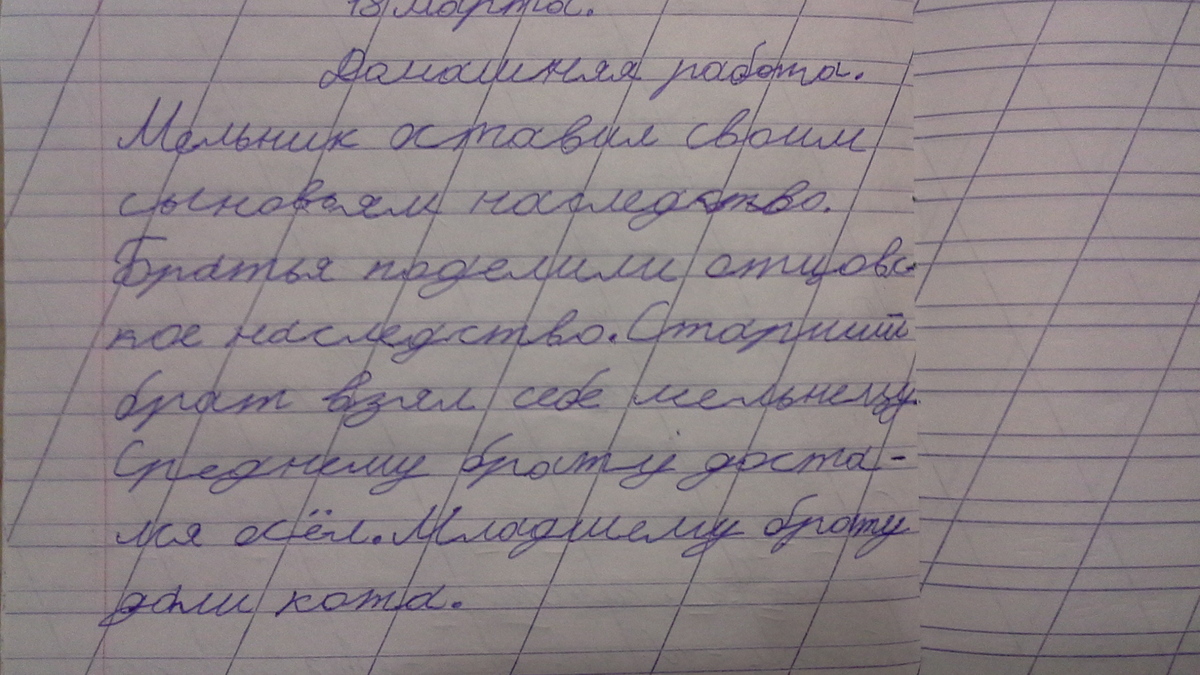 18 марта.
Домашняя работа.
Мельник оставил своим
сыновьям наследство.
Братья поделили отцовс-
кое наследство. Старший
брат взял себе мельницу.
Среднему брату доста-
лся осёл. Младшему брату
дали кота.